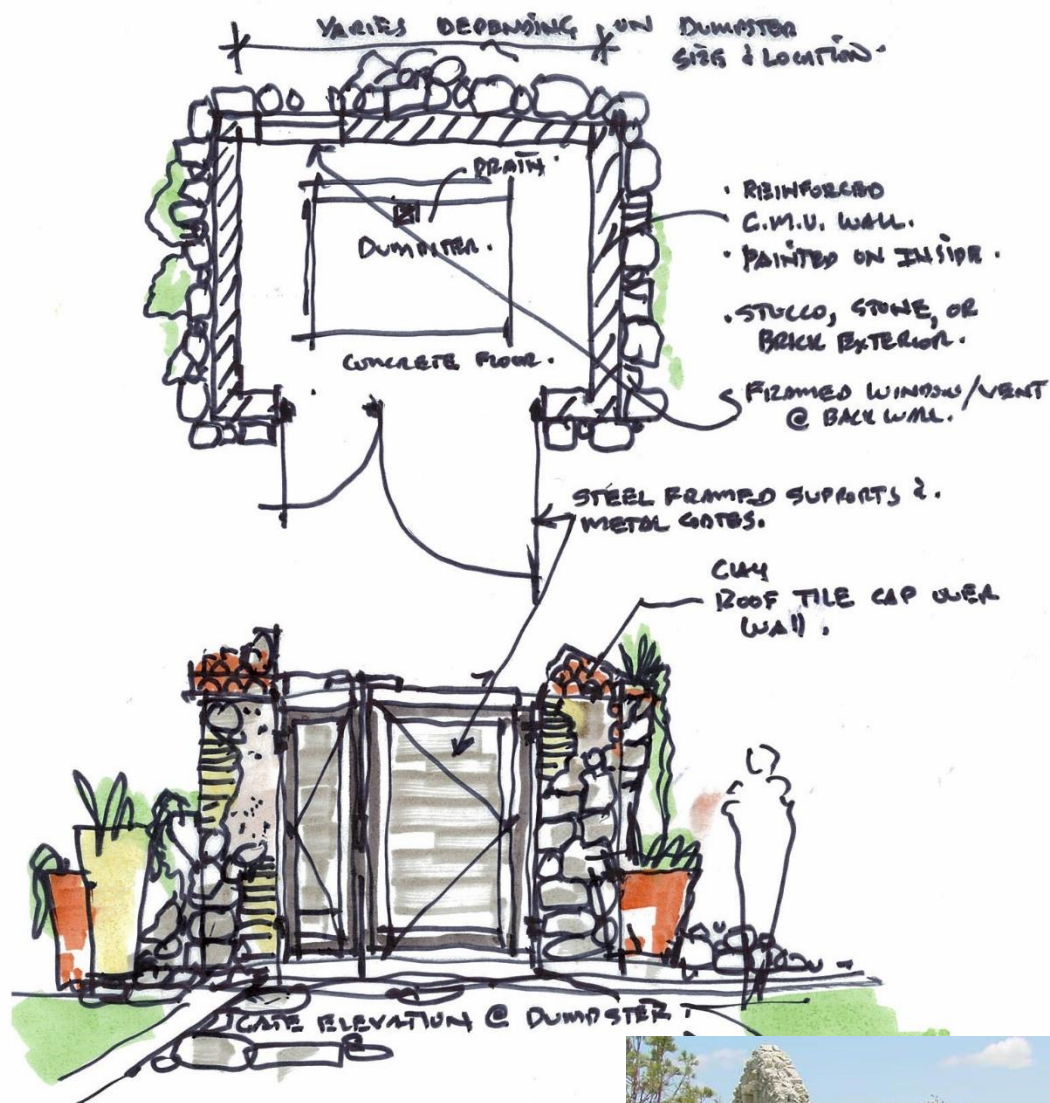 VARIES DEPENDING ON DUMPSTER
SIZE & LOCATION.
DRAIN.
DUMPSTER.
CONCRETE FLOOR.
• REINFORCED
C.M.U. WALL.
• PAINTED ON INSIDE.
• STUCCO, STONE, OR
BRICK EXTERIOR.
FRAMED WINDOW/VENT
@ BACK WALL.
STEEL FRAMED SUPPORTS &
METAL GATES.
CLAY
ROOF TILE CAP OVER
WALL.
GATE ELEVATION @ DUMPSTER.